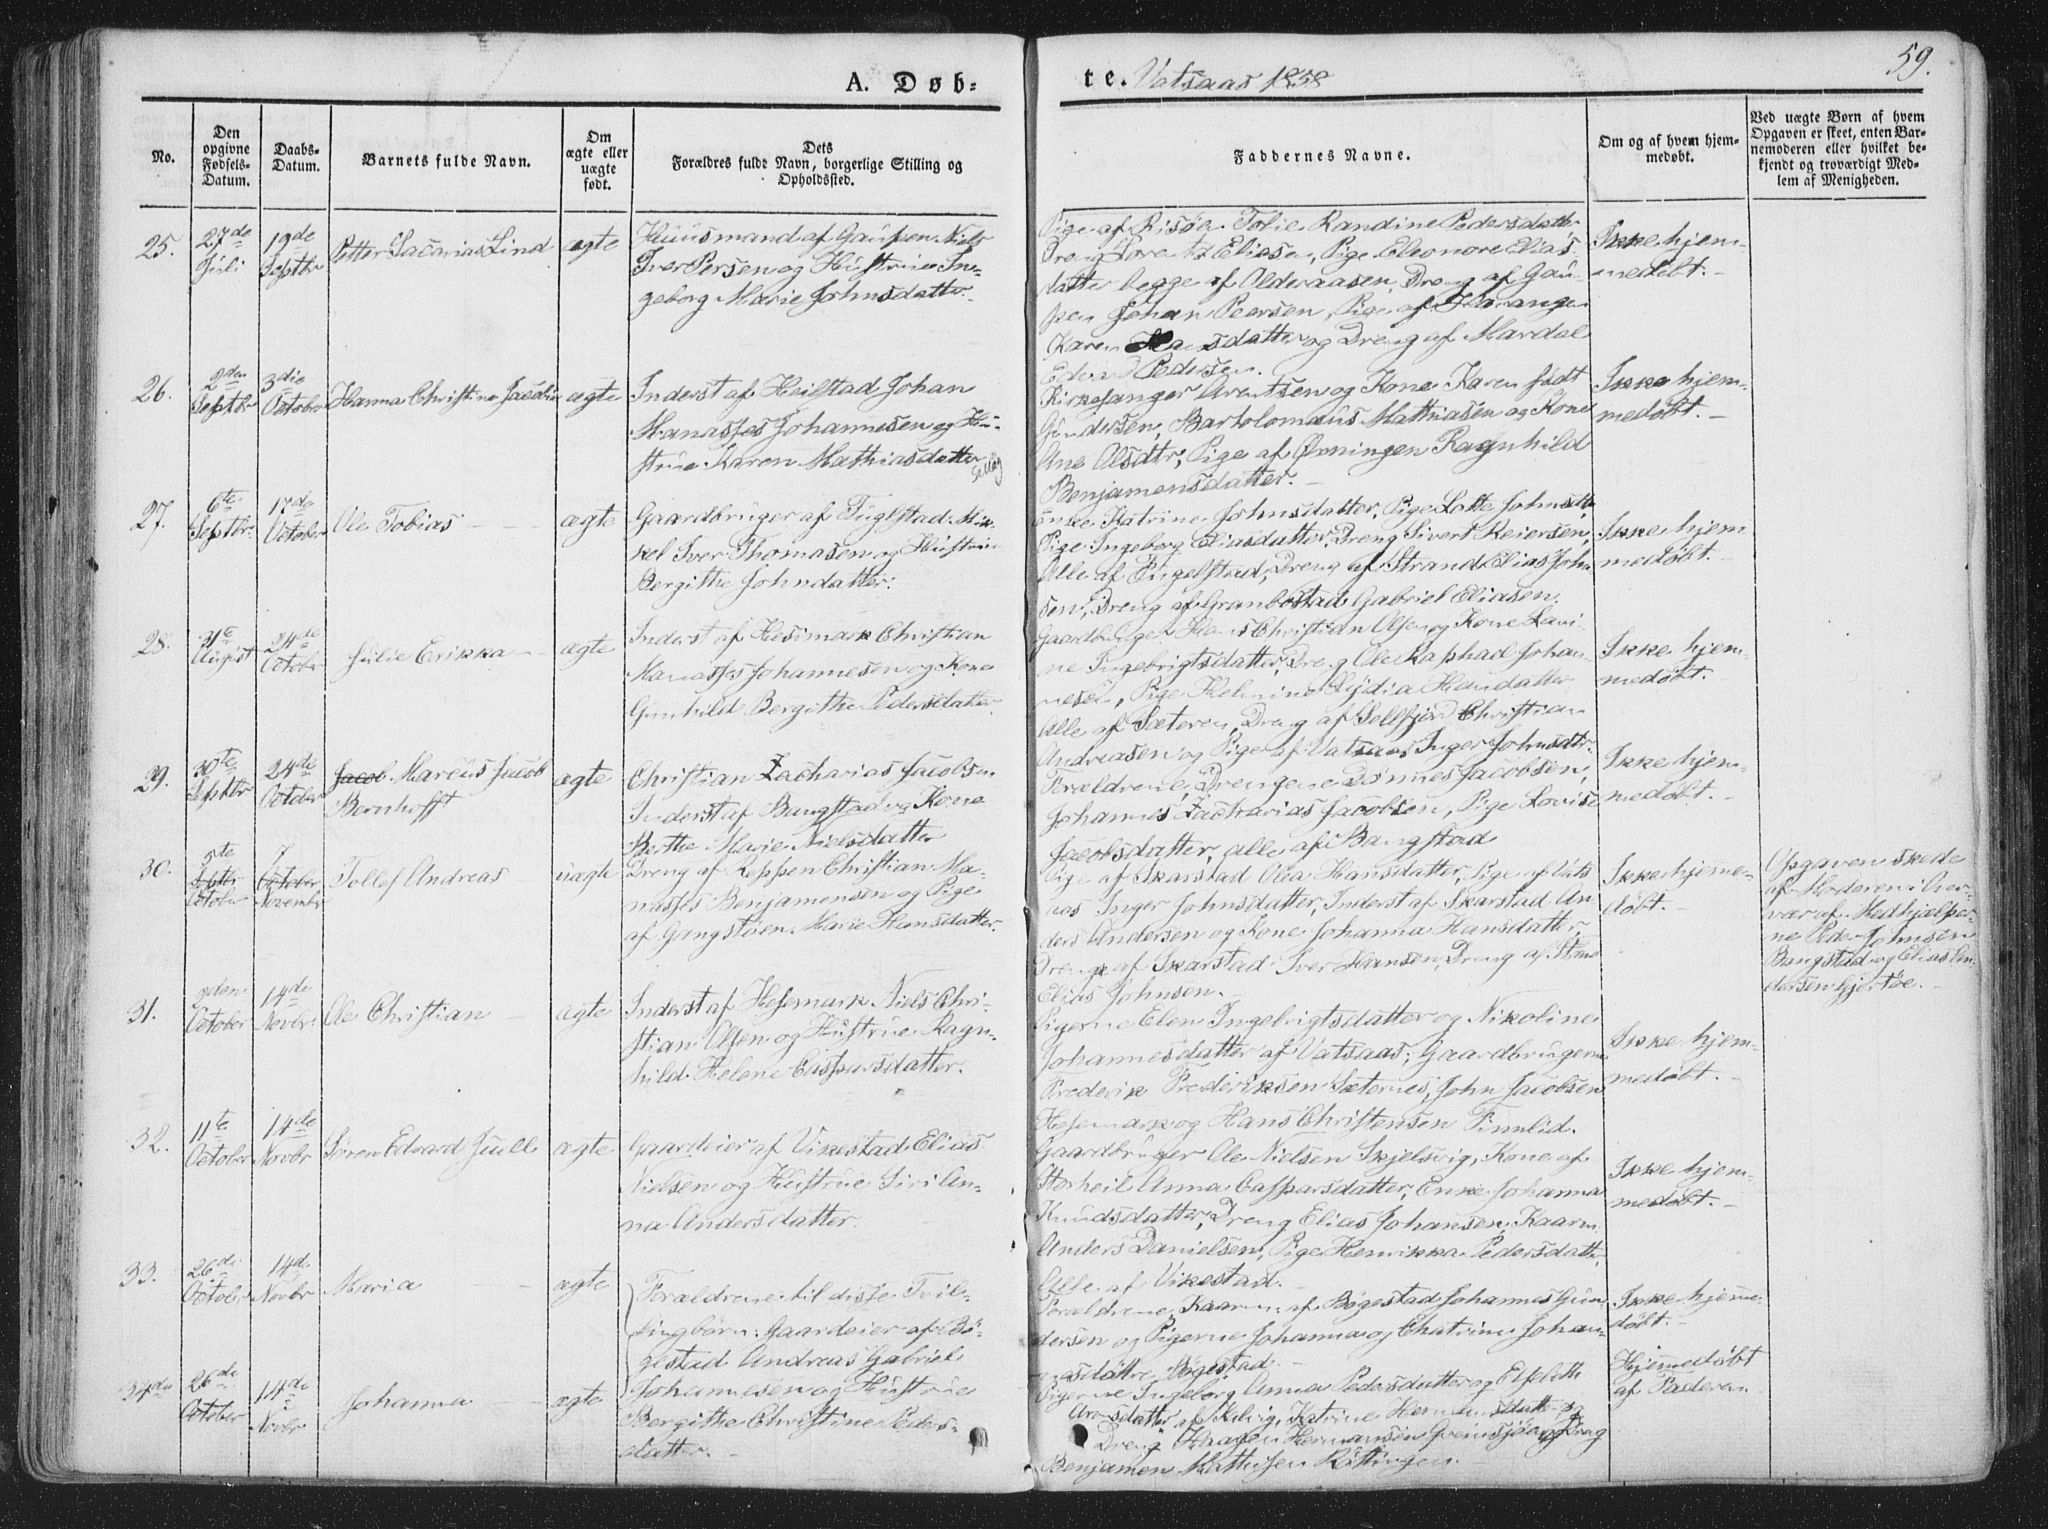 59.
A. Døb-
te. Vatsaas 1858
No.
Den
opgivne
Fødsels-
Datum.
Daabs-
Datum.
Barnets fulde Navn.
Om
ægte eller
uægte
født.
Dets
Forældres fulde Navn, borgerlige Stilling og
Opholdssted.
Faddernes Navne.
Om og af hvem hjem-
medøbt.
Ved uægte Børn af hvem
Opgaven er skeet, enten Bar-
nemoderen eller hvilket be-
kjendt og troværdigt Med-
lem af Menigheden.
25.
27de
Juli
19de
Septbr
Petter Sacarias Lind
ægte
Huusmand af Gaupen Niels
Iver Persen og Hustrue In-
geborg Marie Johnsdatter.
Pige af Risøen Tolie Randine Pedersdatter
Dreng Lorents Eliasen, Pige Eleonore Elias
datter begge af Olderaasen, Dreng af Gau-
pen Johan Peersen, Pige af Harangen
Karen Hansdatter og Dreng af Mardal
Edvard Pedersen.
Ikke hjem-
medøbt.
26.
2den
Septbr
3die
October
Hanna Christine Jacobine
ægte
Inderst af Heilstad Johan
Manasses Johannesen og Hu-
strue Karen Mathiasdatter
Kirkesanger Arentsen og Kone Karen født
Gundersen, Bartolomæus Mathiasen og Kone
Ane Olsdtr, Pige af Øvningen Ragnhild
Benjamensdatter.
Ikke hjem-
medøbt.
27.
6te
Septbr.
17de
October
Ole Tobias
ægte
Gaardbruger af Fuglstad Mik-
kel Iver Thomasen og Hustrue
Bergithe Johndatter.
Enke Katrine Johnsdatter, Pige Lotte Johnsdtr,
Pige Ingeborg Eliasdatter, Dreng Sivert Reiersen,
Alle af Engelstad, Dreng af Strand Elias John
sen, Dreng af Granbostad Gabriel Eliasen.
Ikke hjem
medøbt.
28.
31te
August
24de
October
Julie Erikka
ægte
Inderst af Hesimark Christian
Manasses Johannesen og Kone
Gunhild Bergithe Pedersdatter
Gaardbruger Hans Christian Olsen og Kone Lavi-
ne Ingebrigtsdatter, Dreng Ole Raphael Johan-
nesen, Pige Helmine Lydia Hansdatter
Alle af Sæteren, Dreng af Sellfjord Christian
Andreasen og Pige af Vatsaas Inger Johnsdtr.
Ikke hjem-
medøbt.
29.
30te
Septbr
24de
October
Jacob Marcus Jacob
Bernhofft
ægte
Christian Zacharias Jacobsen
Inderst af Bangstad og Kone
Berthe Marie Nielsdatter
Forældrene, Drengene Dønnes Jacobsen,
Johannes Zacharias Jacobsen, Pige Lovise
Jacobsdatter, alle af Bangstad
Ikke hjem-
medøbt.
30.
5te
Septbr
October
7
October
Novembr
Tollef Andreas
uægte
Dreng af Reppen Christian Ma-
nasses Benjamensen og Pige
af Gangstøen Marie Hansdatter.
Pige af Skarstad Olea Hansdatter, Pige af Vats
aas Inger Johnsdatter, Inderst af Skarstad An
ders Andersen og Kone Johanna Hansdatter,
Dreng af Skarstad Iver Hansen, Dreng af Strand
Elias Johnsen.
Ikke hjemme-
døbt.
Opgaven skede
af Moderen i Over-
vær af Medhjælper-
ne Peder Johnsen
Bangstad og Elias An-
dersen Gjertøe.
31.
October
14de
Novbr.
Ole Christian
ægte
Inderst af Hesemark Niels Chri-
stian Olsen og Hustrue Ragn-
hild Helene Caspersdatter.
Pigerne Elen Ingebrigtsdatter og Nikoline
Johannesdatter af Vatsaas, Gaardbrugerne
Frederik Frederiksen Sæternes, John Jacobsen
Hesemark og Hans Christensen Finnlid.
Ikke hjem-
medøbt.
32.
11te
October
14de
Novbr
Søren Edvard Juell
ægte
Gaardeier af Vikestad Elias
Nielsen og Hustrue Siri An-
na Andersdatter.
Gaardbruger Ole Nielsen Skjelsvig, Kone af
Storheil Anna Caspersdatter, Enke Johanna
Knudsdatter, Dreng Elias Johansen, Kaarm.
Anders Danielsen, Pige Henrikka Pedersdatter,
Alle af Vikestad.
Ikke hjem-
medøbt.
33.
26de
October
14de
Novbr
Maria
ægte
Forældrene til disse Tvil-
lingbørn: Gaardeier af Bø-
gestad Andreas Gabriel
Forældrene, Kaarm. af Bøgestad Johannes Gun-
dersen og Pigerne Johanna og Chatrine Johan-
nesdøttre Bøgestad.
Ikke hjemme-
døbt.
34de
26de
October
14de
Novbr
Johanna
ægte
Johannesen og Hustrue
Bergithe Christine Peders-
datter.
Pigerne Ingeborg Anna Pedersdatter og Elsebeth
Aronsdatter af Kilvig, Katrine Hermansdatter og
Dreng Haagen Hermansen og Dreng
Benjamen Mathisen Røttingen.
Hjemmedøbt
af Faderen